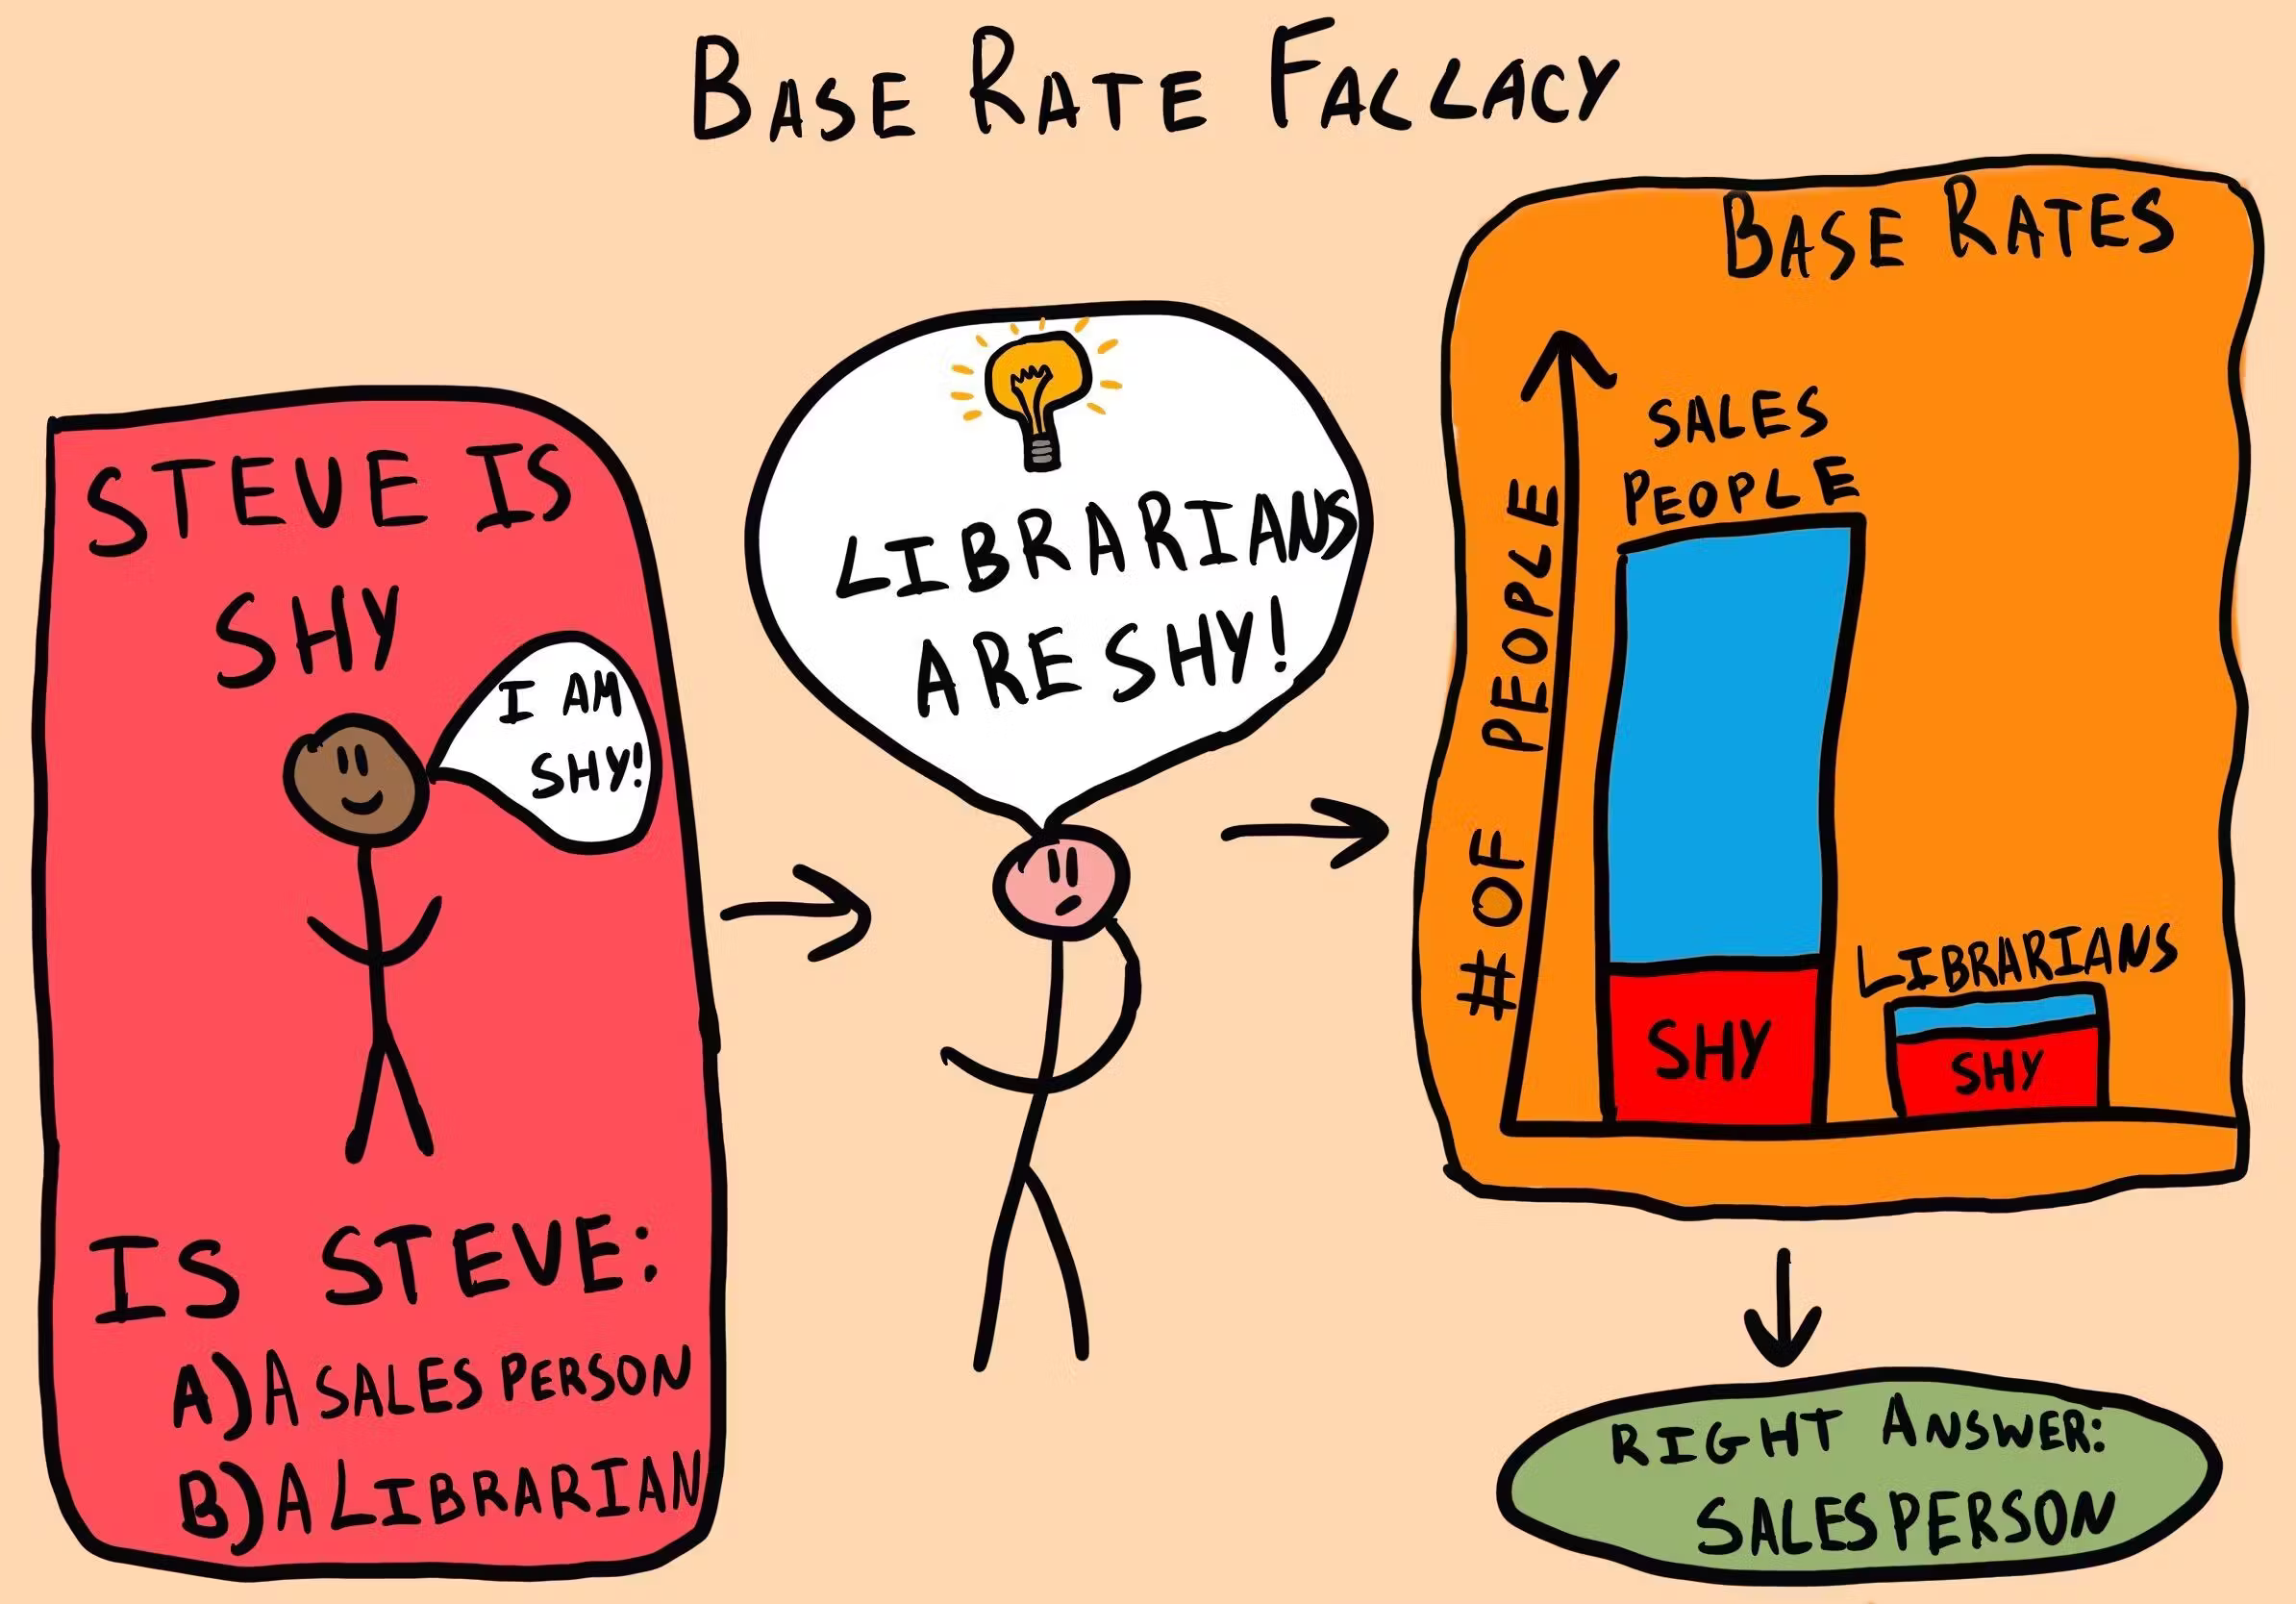 BASE RATE FALLACY
STEVE IS
SHY
I AM
SHY!
IS STEVE:
A) A SALES PERSON
B) A LIBRARIAN
LIBRARIANS
ARE SHY!
BASE RATES
# OF PEOPLE
SALES
PEOPLE
SHY
LIBRARIANS
SHY
RIGHT ANSWER:
SALESPERSON